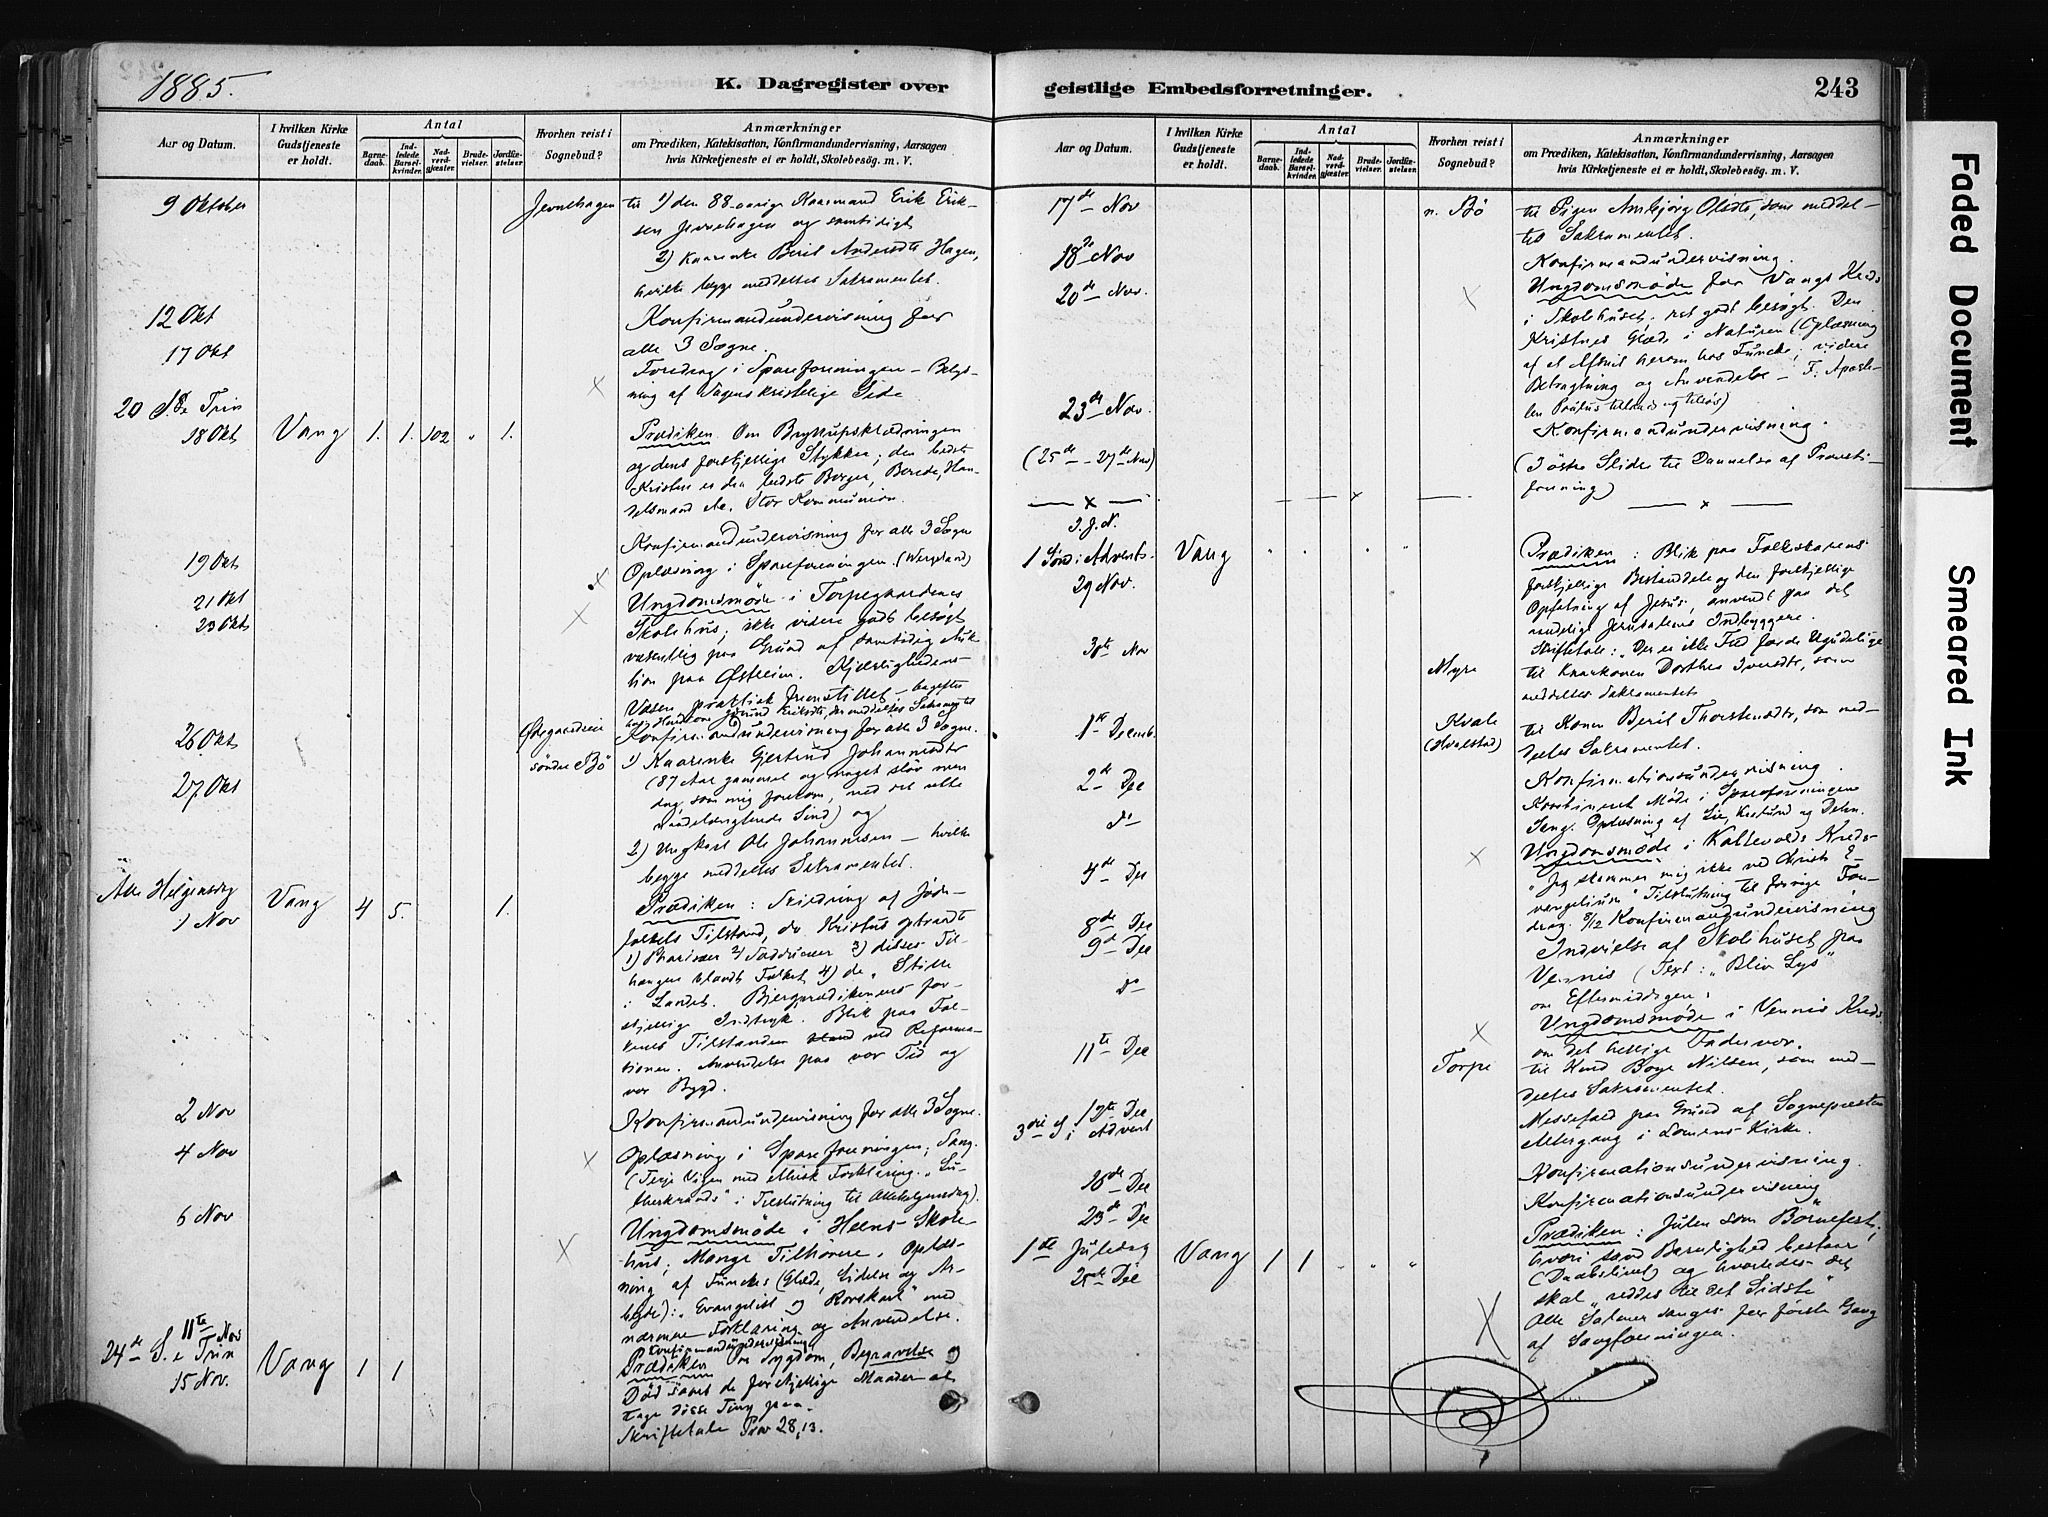 1885.
K. Dagregister over
geistlige Embedsforretninger.
243
Aar og Datum.
I hvilken Kirke Gudstjeneste er holdt.
Antal
Barnedaab.
Indledede Barselkvinder.
Nadverdgjæster.
Brudevielser.
Jordfæstelser.
Hvorhen reist i Sognebud?
Anmærkninger
om Prædiken, Katekisation, Konfirmandundervisning, Aarsagen
hvis Kirketjeneste ei er holdt, Skolebesøg. m. V.
9 Oktober
Jevnehagen
til 1) den 88-aarige Kaarmand Erik Erik-
sen Jevnehagen og samtidigt
2) Kaarenke Berit Andersdtr Hagen,
hvilke begge meddeltes Sakramentet.
12 Okt
Konfirmandundervisning for
alle 3 Sogne.
17 Okt
Foredrag i Spareforeningen – Belys-
ning af Sagens kristelige Side
20 S. e Trin
18 Okt
Vang
1. 1. 102 " 1.
Prædiken. Om Bryllupsklædningen
og dens forskjellige Stykker; den bedste
Kristen er den bedste Borger, Bonde, Han-
delsmand etc. Stor Kommunion.
19 Okt
Konfirmandundervisning for alle 3 Sogne
21 Okt
Oplæsning i Spareforeningen. (Wergeland)
23 Okt
Ungdomsmøde i Torpegaardenes
Skolehus; ikke videre godt besøgt
væsentlig paa Grund af samtidig Auk-
tion paa Østreim. Kjærlighedens
Væsen praktisk fremstillet – bagefter
26 Okt
Øvregaardseie
Konfirmandundervisning for alle 3 Sogne.
27 Okt
søndre Bø
1) Kaarenke Gjertrud Johannesdtr
(87 Aar gammel og noget sløv men
dog, som mig forekom, med det rette
naadelængtende Sind) og
2) Ungkarl Ole Johannesen – hvilke
begge meddeltes Sakramentet.
Alle Helgensdag
1 Nov
Vang
4 5. 1.
Prædiken: Skildring af Jøde-
folkets Tilstand, da Kristus optraadte
1) Pharisæer 2) Sadducæer 3) disses Til-
hængere blandt Folket 4) de "Stille
i Landet. Bjergprædikenens for-
skjellige Indtryk. Blik paa Fol-
kenes Tilstanden ved Reforma-
tionen. Anvendelse paa vor Tid og
vor Bygd.
2 Nov
Konfirmandundervisning for alle 3 Sogne.
4 Nov
Oplæsning i Spareforeningen; Sang.
(Terje Vigen med ethisk Forklaring. "Lu-
therkvads" i Tilslutning til Allehelgensdag).
6 Nov
Ungdomsmøde i Heens Skole-
hus; Mange Tilhørere. Oplæs-
ning af Funckes (Glæde, Lidelse og Ar-
beide): "Evangelist og Rorskarl" med
nærmere Forklaring og Anvendelse.
11te Nov
Konfirmandundervisning
24de S. e Trin
15 Nov.
Vang
1 1
Prædiken Om Sygdom, Begravelse og
Død samt de forskjellige Maader at
tage disse Ting paa.
Skriftetale Prov 28,13.
Aar og Datum.
I hvilken Kirke Gudstjeneste er holdt.
Antal
Barnedaab.
Indledede Barselkvinder.
Nadverdgjæster.
Brudevielser.
Jordfæstelser.
Hvorhen reist i Sognebud?
Anmærkninger
om Prædiken, Katekisation, Konfirmandundervisning, Aarsagen
hvis Kirketjeneste ei er holdt, Skolebesøg. m. V.
17de Nov
n. Bø
til Pigen Ambjørg Olsdtr, som meddel-
tes Sakramentet.
18de Nov
Konfirmandundervisning.
20de Nov.
Ungdomsmøde for Vangs Kreds
i Skolehuset. ret godt besøgt. Den
Kristnes Glæde i Naturen (Oplæsning
af et Afsnit herom hos Funcke; videre
Betragtning og Anvendelse – F: Apostе-
len Paulus tillands og tilsøs)
23de Nov.
Konfirmandundervisning.
(25de – 27de Nov)
(I østre Slidre til Dannelse af Provsti-
forening)
I. J. N.
1 Sønd i Advents.
29 Nov.
Vang
Prædiken: Blik paa Folkskarens
forskjellige Bestanddele og den forskjellige
Opfatning af Jesus, anvendt paa det
aandelige Jerusalems Indbyggere.
Skriftetale: "Der er ikke Fred for de Ugudelige
30te Nov
Myre
til Kaarkonen Dorthea Iversdtr, som
meddeltes Sakramentet
1ste Decemb.
Kvale
(Hvalstad)
til Konen Berit Thorstensdtr, som med-
deltes Sakramentet.
2de Dec
Konfirmationsundervisning.
do
Kombineret Møde i Spareforeningen
Sang. Oplæsning af Lie,
4de Dec
Ungdomsmøde i Kattevolds Kreds
"Jeg skammer mig ikke ved Kristi E-
vangelium" Tilslutning til forrige Fore-
8de Dec
drag. 8/12 Konfirmandundervisning
9de Dec
Indvielse af Skolehuset paa
Vennis (Text: "Bliv Lys"
do
om Eftermiddagen:
Ungdomsmøde i Vennis Kreds.
om det hellige Fadervor.
11te Dec
Torpe
til Knud Boye Nilsen, som med-
deltes Sakramentet.
3die S i Advent
Messefald paa Grund af Sognepræstens
Altergang i Lomens Kirke.
Konfirmationsundervisning.
23de Dec
Konfirmationsundervisning
1ste Juledag
25de Dec
Vang
1 1 " " "
Prædiken: Julen som Børnefest;
hvori sand Barnlighed bestaar
(Daabslivet) og hvorledes det
skal "reddes til det Sidste"
Alle Salmer sanges for første Gang
af Sangforeningen.
Faded Document
Smeared Ink